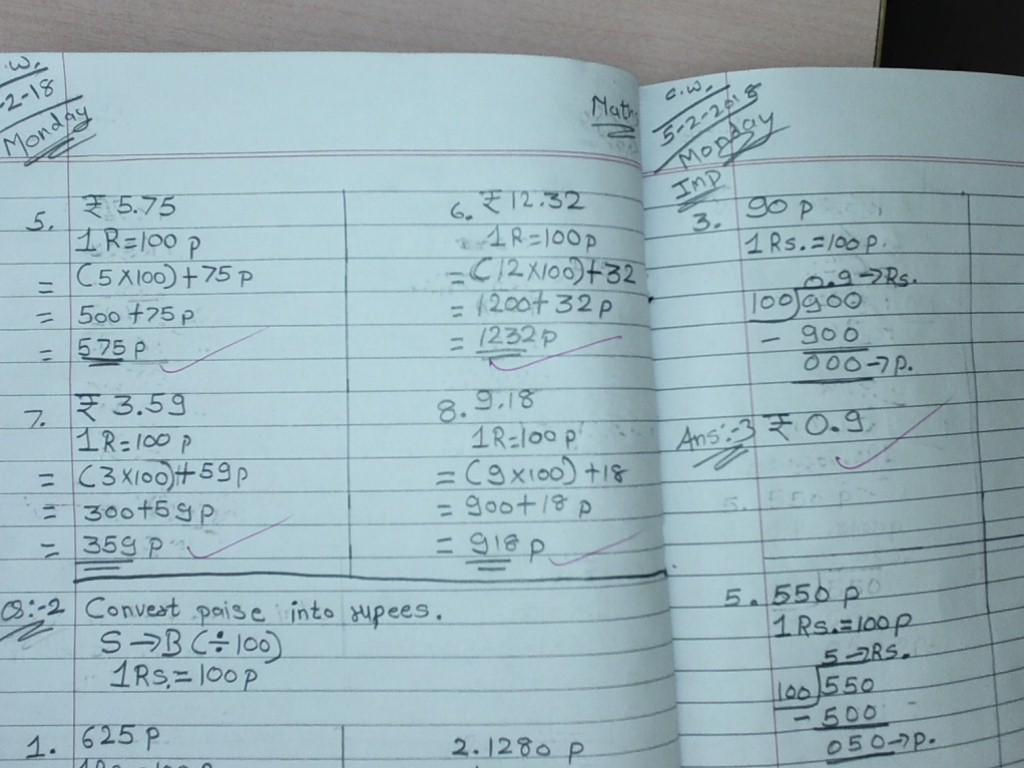 .W.
-2-18
Monday
Maths
5. ₹ 5.75
1R=100 p
= (5×100)+75 p
= 500+75 p
= 575 p
6. ₹ 12.32
1R=100p
= (12×100)+32
= 1200+32 p
= 1232 p
7. ₹ 3.59
1R=100 p
= (3×100)+59 p
= 300+59 p
= 359 p
8. 9.18
1R=100 p
= (9×100)+18
= 900+18 p
= 918 p
Qs:-2 Convert paise into rupees.
S→B (÷100)
1Rs.=100p
1. 625 p
2. 1280 p
C.W.
5-2-2018
Monday
Imp
3. 90 p
1Rs.=100p.
0.9→Rs.
100)900
- 900
000→p.
Ans:-3 ₹ 0.9
5. 550 p
1Rs.=100p
5→Rs.
100)550
- 500
050→p.